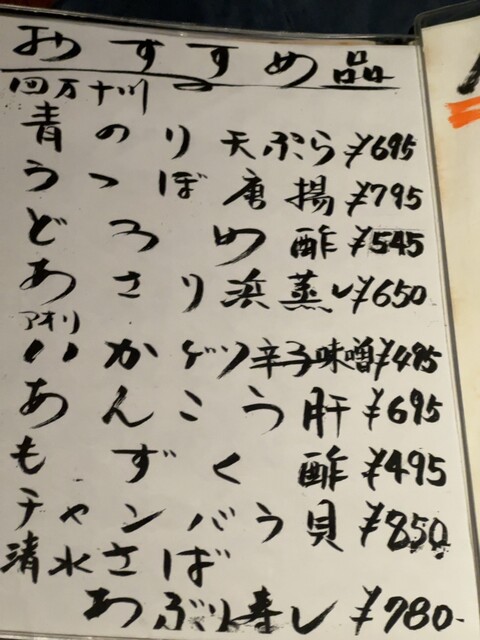 おすすめ品
四万十川
青のり天ぷら ¥695
うつぼ唐揚 ¥795
どろめ酢 ¥545
あさり浜蒸し ¥650
アオリ
イカゲソ辛子味噌 ¥495
あんこう肝 ¥695
もずく酢 ¥495
チャンバラ貝 ¥850
清水さば
あぶり寿し ¥780-